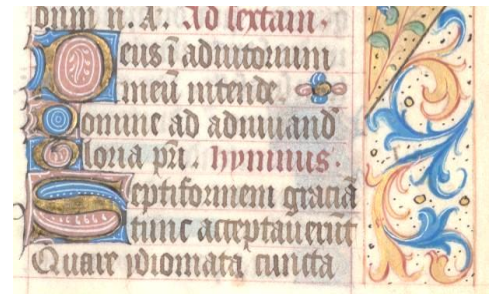 dnm n. A. Ad sextam.
Deus ī adiutorium
meū intende
Domine ad adiuuand
Gloria pri. hymnus.
Septiformem graciā
tunc acceptauerūt
Quare ydiomata cuncta